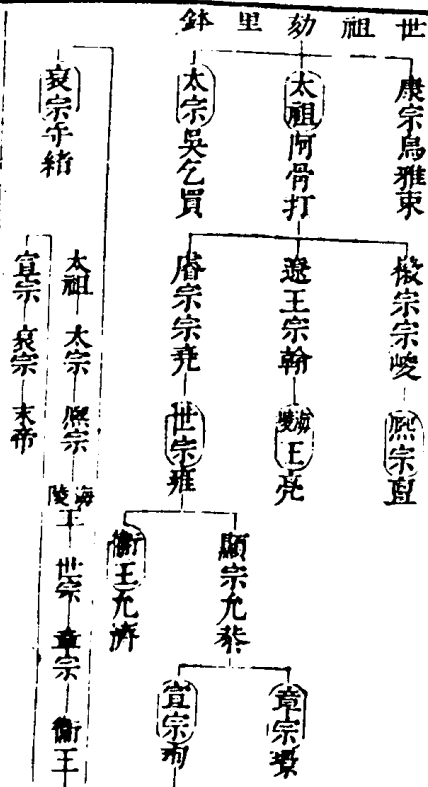 世祖劾里鉢
康宗烏雅束
太祖阿骨打
太宗吳乞買
徽宗宗峻
遼王宗翰
睿宗宗堯
熙宗亶
海陵王亮
世宗雍
顯宗允恭
衞王允濟
章宗璟
宣宗珣
哀宗守緒
太祖 太宗 熙宗 海陵王 世宗 章宗 衞王
宣宗 哀宗 末帝